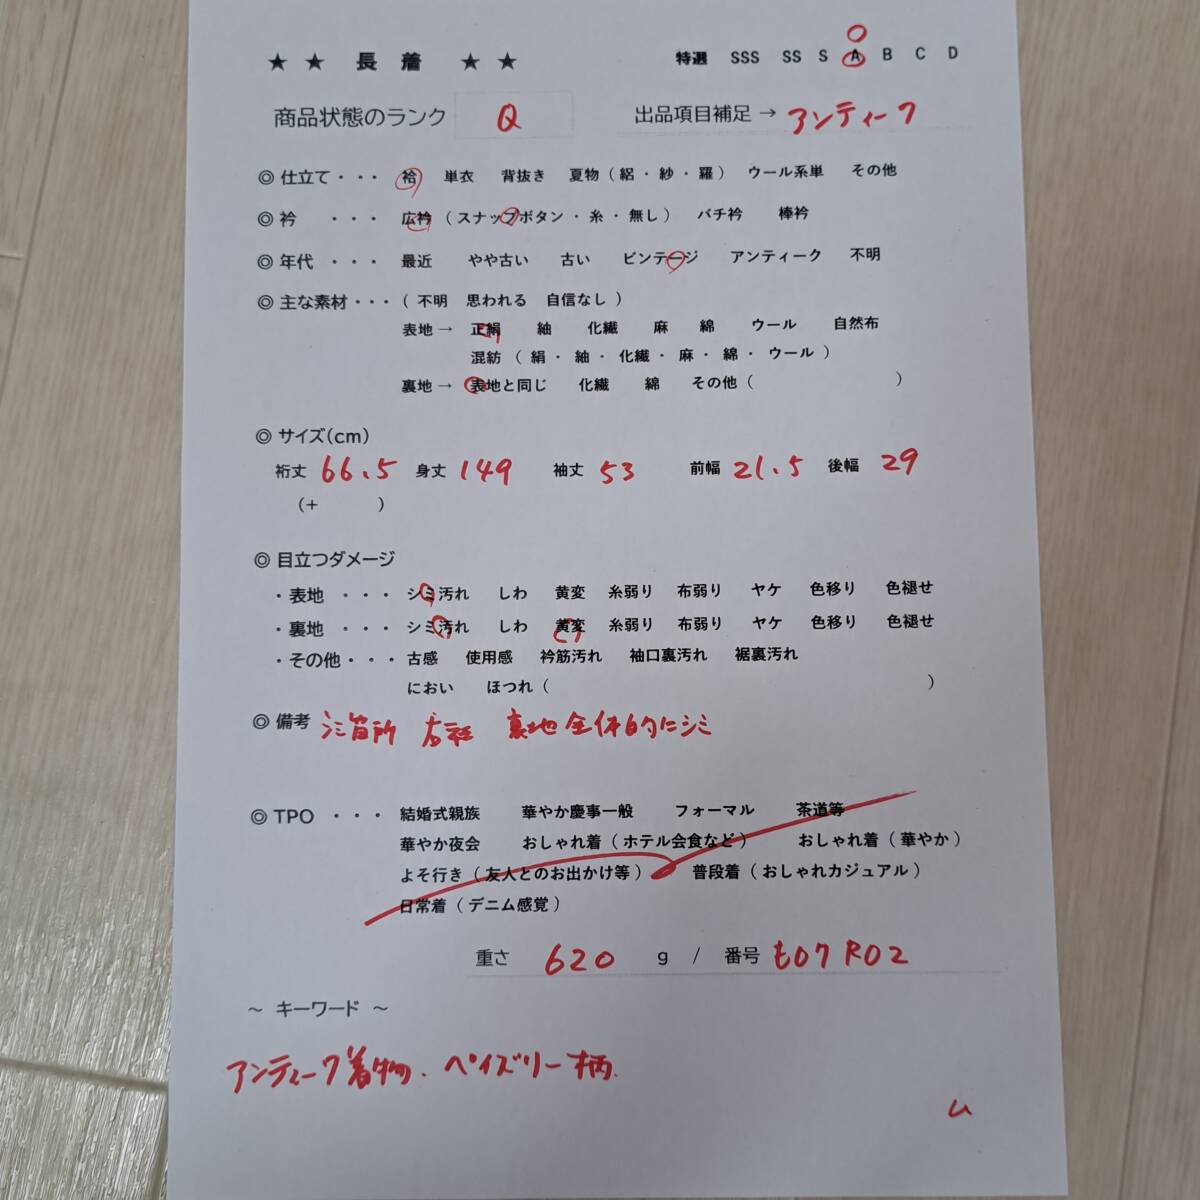 ★ ★ 長 着 ★ ★ 特選 SSS SS S A B C D
商品状態のランク Q 出品項目補足 → アンティーク
◎ 仕立て・・・ 袷 単衣 背抜き 夏物（絽・紗・羅） ウール系単 その他
◎ 衿 ・・・ 広衿（スナップボタン・糸・無し） バチ衿 棒衿
◎ 年代 ・・・ 最近 やや古い 古い ビンテージ アンティーク 不明
◎ 主な素材・・・（ 不明 思われる 自信なし ）
表地 → 正絹 紬 化繊 麻 綿 ウール 自然布
混紡（ 絹・紬・化繊・麻・綿・ウール ）
裏地 → 表地と同じ 化繊 綿 その他（ ）
◎ サイズ(cm)
裄丈 66.5 身丈 149 袖丈 53 前幅 21.5 後幅 29
（+ ）
◎ 目立つダメージ
・表地 ・・・ シミ汚れ しわ 黄変 糸弱り 布弱り ヤケ 色移り 色褪せ
・裏地 ・・・ シミ汚れ しわ 黄変 糸弱り 布弱り ヤケ 色移り 色褪せ
・その他・・・ 古感 使用感 衿筋汚れ 袖口裏汚れ 裾裏汚れ
におい ほつれ（ ）
◎ 備考 シミ箇所 裏地全体的にシミ
◎ TPO ・・・ 結婚式親族 華やか慶事一般 フォーマル 茶道等
華やか夜会 おしゃれ着（ホテル会食など） おしゃれ着（華やか）
よそ行き（友人とのお出かけ等） 普段着（おしゃれカジュアル）
日常着（デニム感覚）
重さ 620 g / 番号 も07R02
～ キーワード ～
アンティーク着物、ペイズリー柄
ム